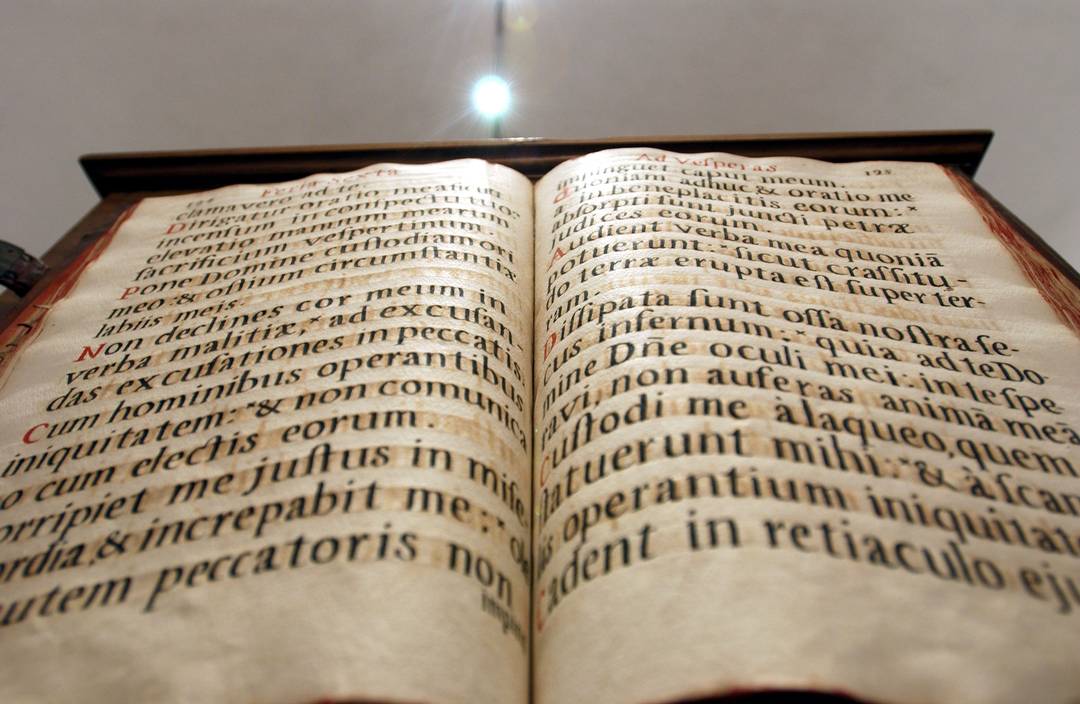 Feria Sexta
clamavero ad te.
Dirigatur oratio mea sicut
incensum in conspectu tuo:*
elevatio manuum mearum
sacrificium vespertinum
Pone Domine custodiam ori
meo:& ostium circumstantiæ
labiis meis.
Non declines cor meum in
verba malitiæ,* ad excusan-
das excusationes in peccatis.
Cum hominibus operantibus
iniquitatem:*& non comunica
bo cum electis eorum.
orripiet me justus in mise
ordia,& increpabit me:*
utem peccatoris non
impin
Ad Vesperas 125
impinguet caput meum.
Quoniam adhuc & oratio mea
in beneplacitis eorum:*
absorpti sunt juncti petræ
judices eorum.
Audient verba mea quoniā
potuerunt:*sicut crassitu-
do terræ erupta est super ter-
ram.
Dissipata sunt ossa nostra se-
cus infernum:*quia ad te Do-
mine Dñe oculi mei: in te spe-
ravi, non auferas animā meā
Custodi me à laqueo, quem
statuerunt mihi:*& à scan
operantium iniquitat
Cadent in retiaculo eju